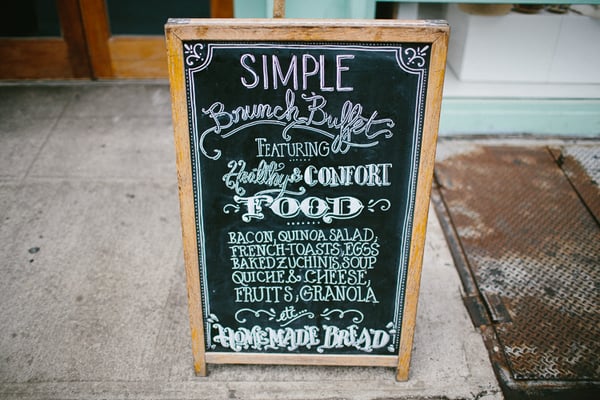 SIMPLE
Brunch Buffet
FEATURING
Healthy & CONFORT
FOOD
BACON, QUINOA SALAD,
FRENCH-TOASTS, EGGS
BAKED ZUCHINIS, SOUP
QUICHE & CHEESE,
FRUITS, GRANOLA
etc...
HOMEMADE BREAD